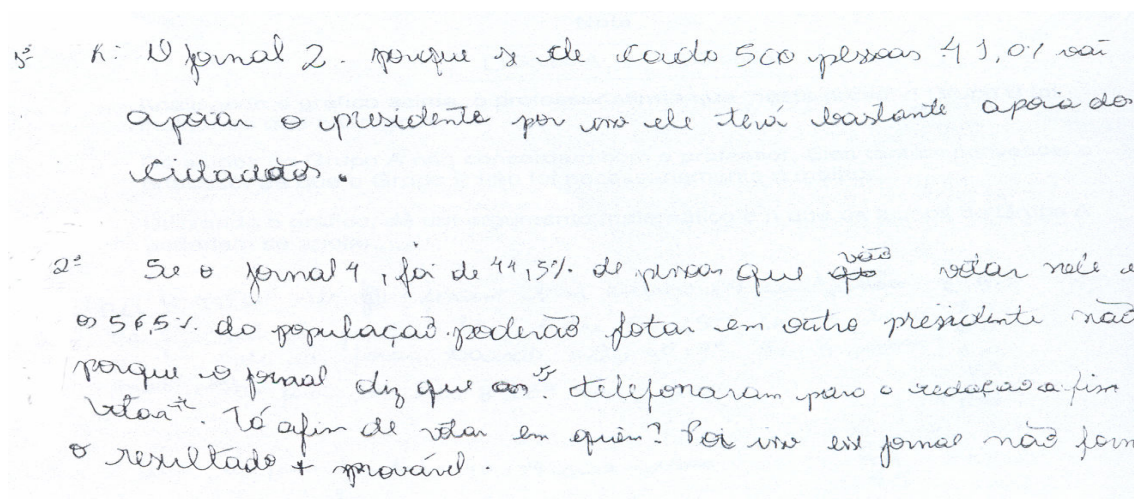 1ª R: O jornal 2. porque se de cada 500 pessoas 41,0% vai
apoiar o presidente por isso ele terá bastante apoio dos
cidadãos.
2ª Se o jornal 4, foi de 44,5% de pessoas que vão votar nele e
os 56,5% da população poderão fotar em outro presidente não
porque o jornal diz que telefonaram para a redação a fim
votar. Tá afim de votar em quem? Por isso esse jornal não forn
o resultado + provável.